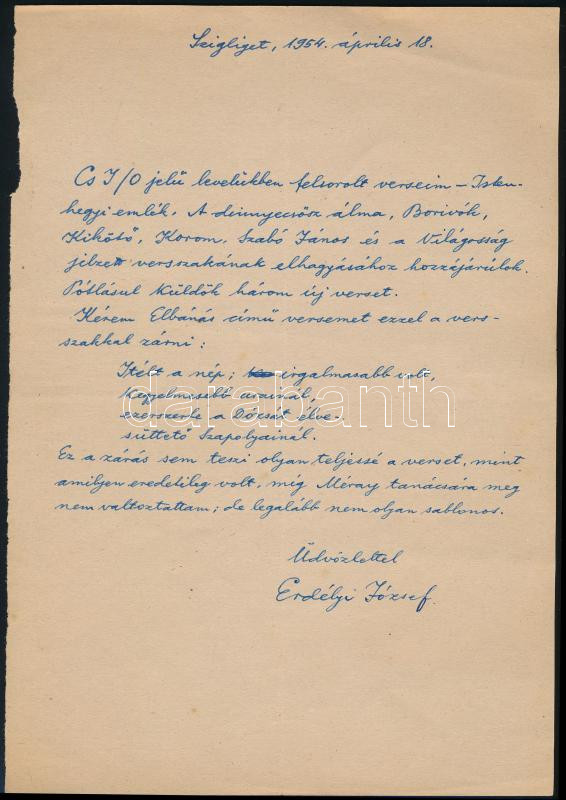 Szigliget, 1954. április 18.
Cs I/O jelű levelükben felsorolt verseim – Isten-
hegyi emlék, A dinnyecsősz álma, Borivók,
Kikötő, Korom, Szabó János és a Világosság
jelzett versszakának elhagyásához hozzájárulok.
Pótlásul küldök három új verset.
Kérem Elbánás című versemet ezzel a vers-
szakkal zárni:
Itélt a nép; irgalmasabb volt,
kegyelmesebb urainál,
ezerszerte a Dózsát élve-
süttető Szapolyainál.
Ez a zárás sem teszi olyan teljessé a verset, mint
amilyen eredetileg volt, míg Méray tanácsára meg
nem valtoztattam; de legalább nem olyan sablonos.
Üdvözlettel
Erdélyi József.
darabanth